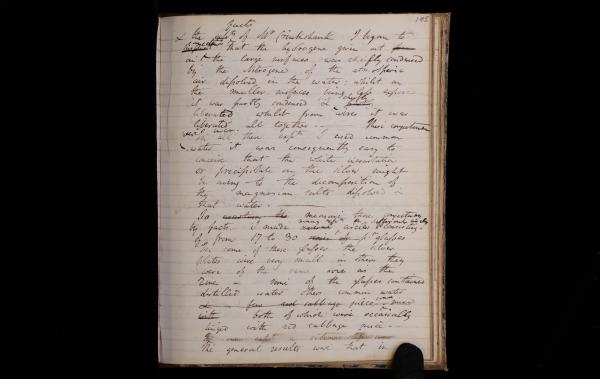 facts
145
& the expts of Mr Cruikshank I began to
suspect that the hydrogene given out from
on the large surfaces was chiefly condensed
by the Nitrogene of the atmospheric
air dissolved in the water; whilst on
the smaller surfaces being less exposed
it was partly condensed & partly
liberated whilst from wires it was
liberated all together. — These conjectures
In all these expts I used common
water it was consequently easy to
conceive that the white accumulation
or precipitate on the silver might
be owing to the decomposition of
the magnesian salts dissolved in
that water. —
To measure these conjectures
by facts. I made several circles consisting
of from 17 to 30 glasses
In some of these glasses the silver
plates were very small in others they
were of the same size as the
Zinc — some of the glasses contained
distilled water others common water
red cabbage juice
both of which were occasionally
tinged with red cabbage juice. —
The general results was that in